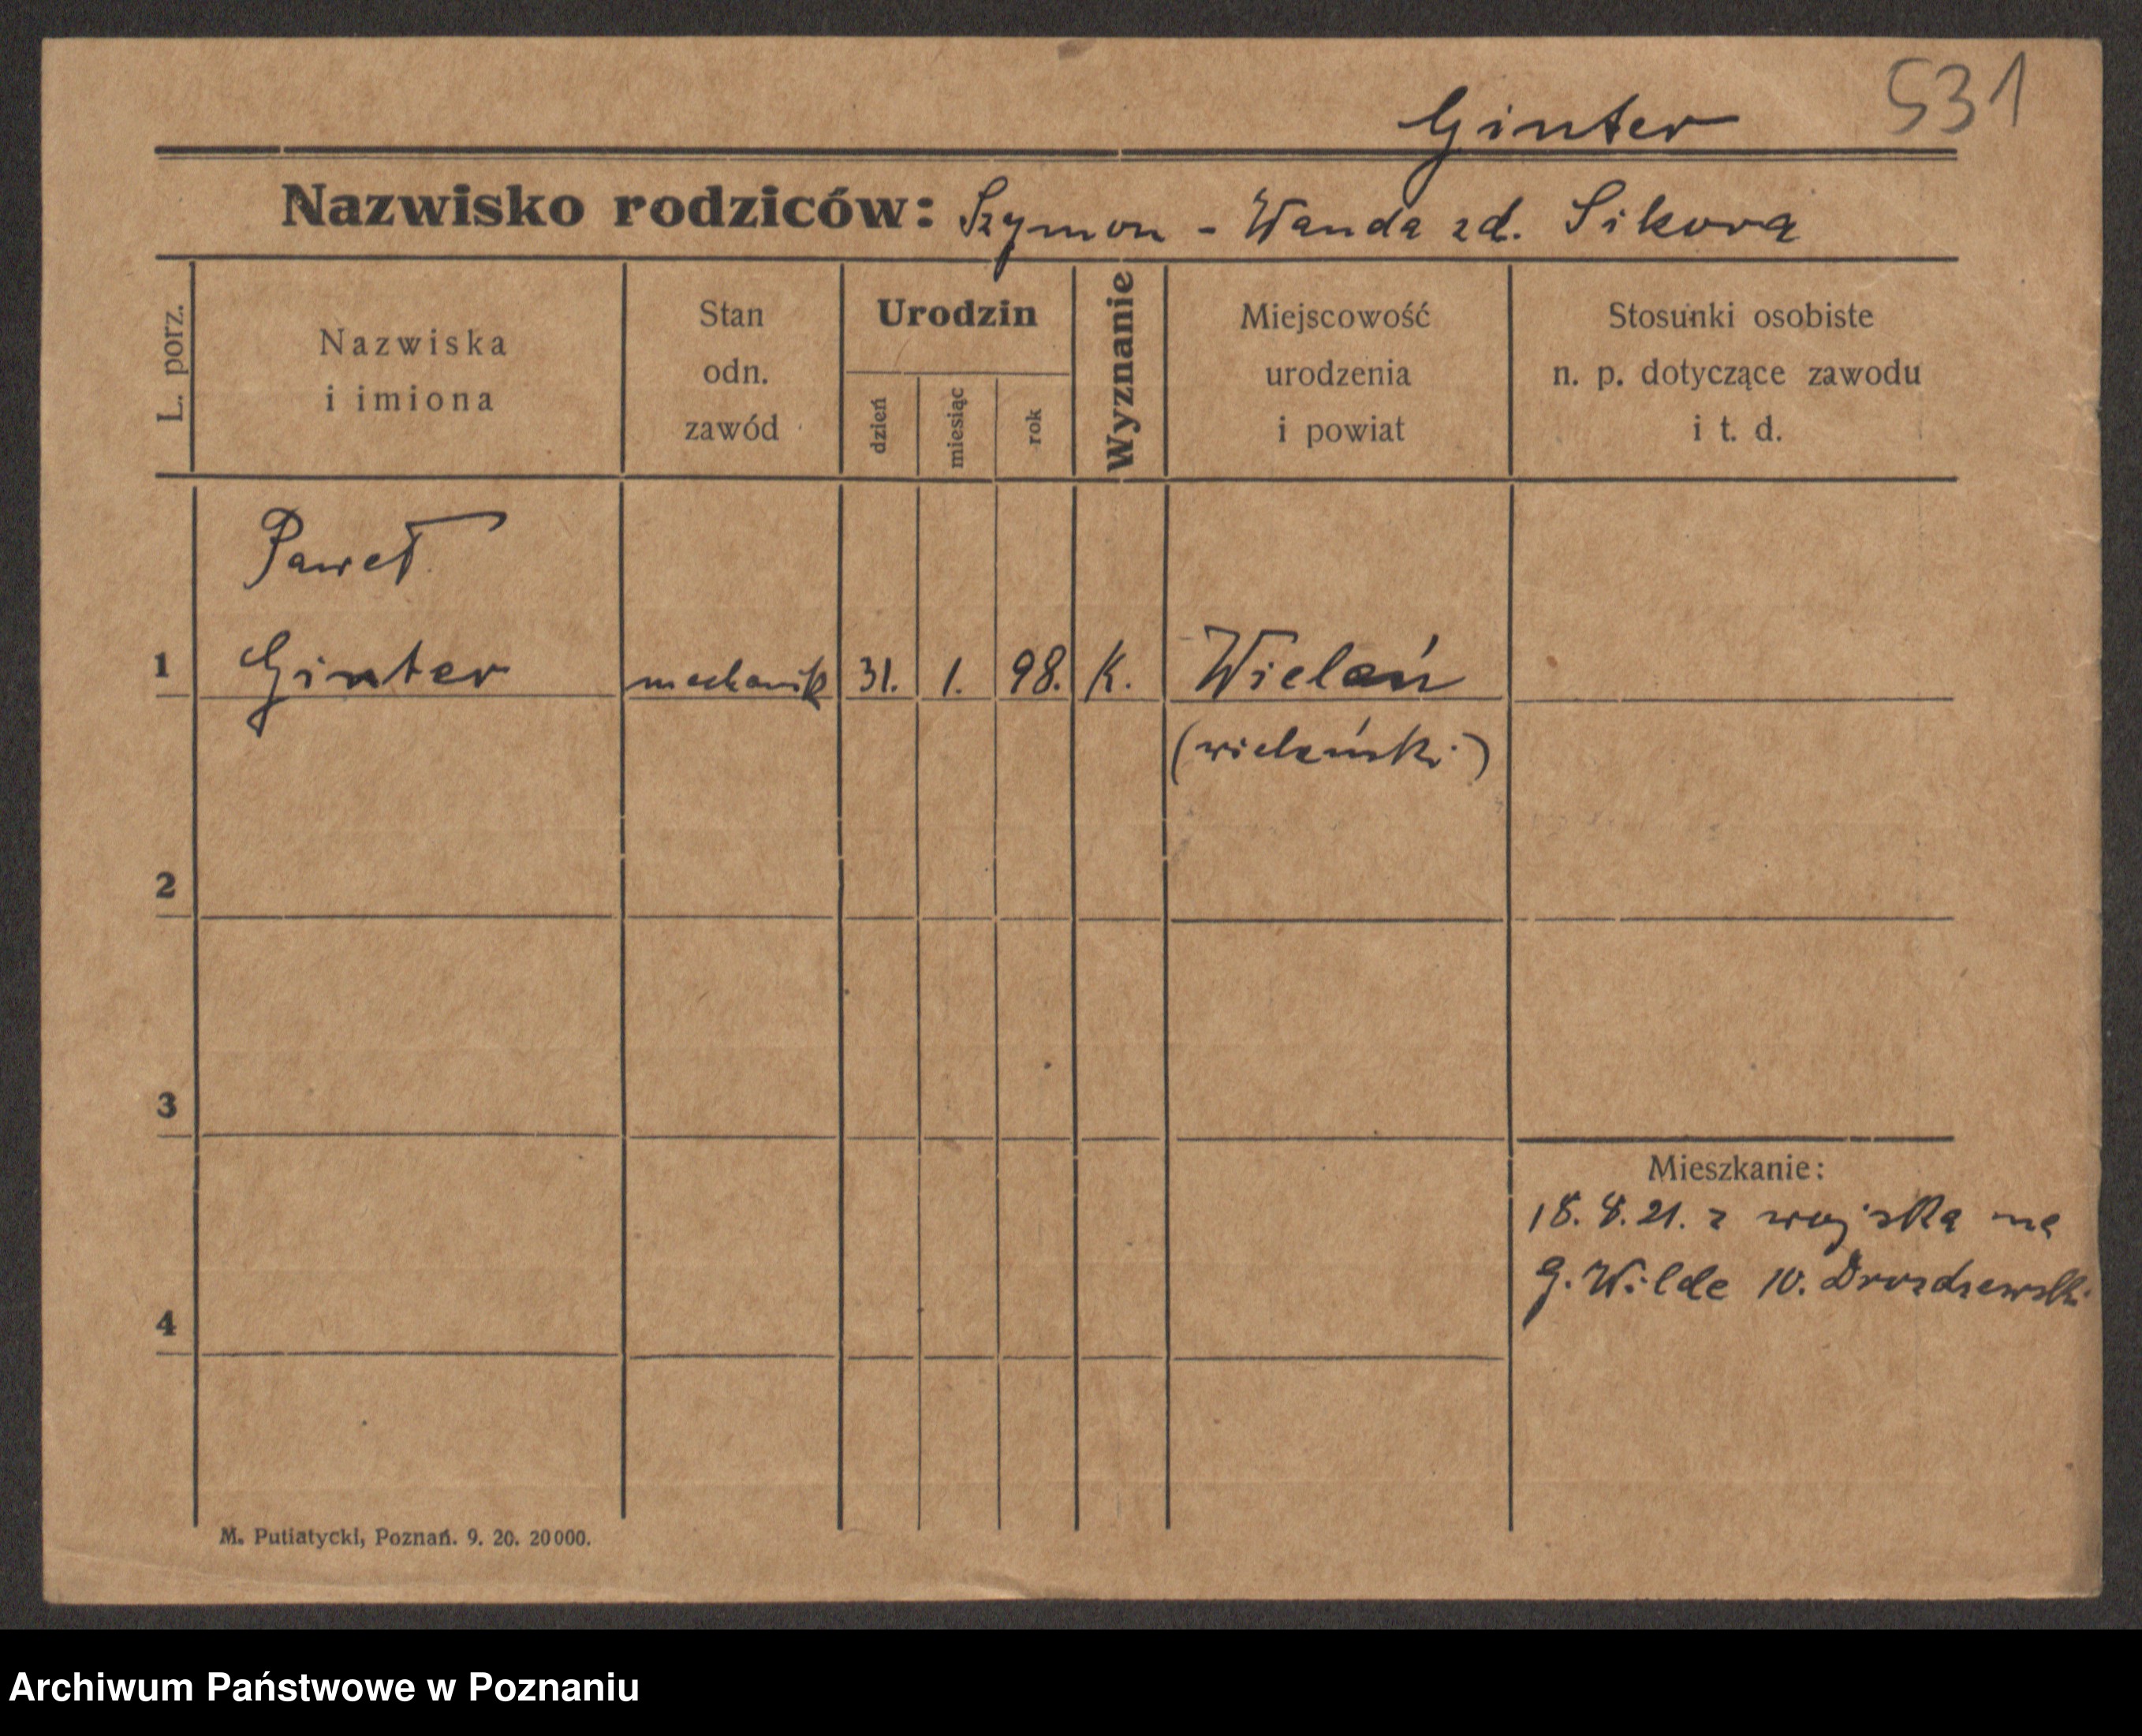 531
Ginter
Nazwisko rodziców: Szymon - Wanda zd. Sikora
L. porz.
Nazwiska
i imiona
Stan
odn.
zawód
Urodzin
dzień
miesiąc
rok
Wyznanie
Miejscowość
urodzenia
i powiat
Stosunki osobiste
n. p. dotyczące zawodu
i t. d.
Paweł
1 Ginter mechanik 31. 1. 98. K. Wieleń
(wieleński)
2
3
Mieszkanie:
18. 8. 21. z wojska na
G. Wilde 10. Drozdzewski
4
M. Putiatycki, Poznań. 9. 20. 20000.
Archiwum Państwowe w Poznaniu